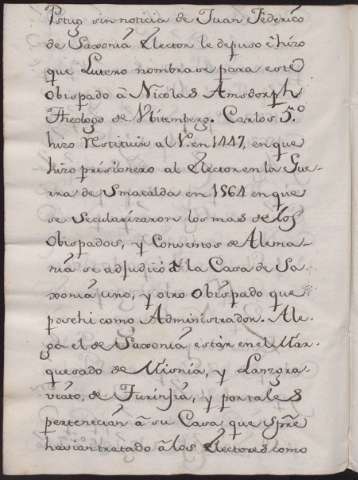 sin noticia de Juan Federico
de Saxonia Elector le depuso è hizo
que Lutero nombrase para este
Obispado â Nicolas Amsdorph
Theologo de Vitemberg. Carlos 5.º
hizo restituir al V. en 1447, en que
hizo prisionero al Elector en la Gue-
rra de Smacalda en 1564 en que
se secularizaron los mas de los
Obispados, y Conventos de Alema-
nia se adjudicó â la Casa de Sa-
xonia uno, y otro Obispado que
poschi como Administrador. Ale-
ga el de Saxonia estàn en el Mar-
quesado de Misnia, y Lanzgra-
viato, de Turinjia, y por tales
pertenecian â su Casa que spre
havian tratado â los Electores como